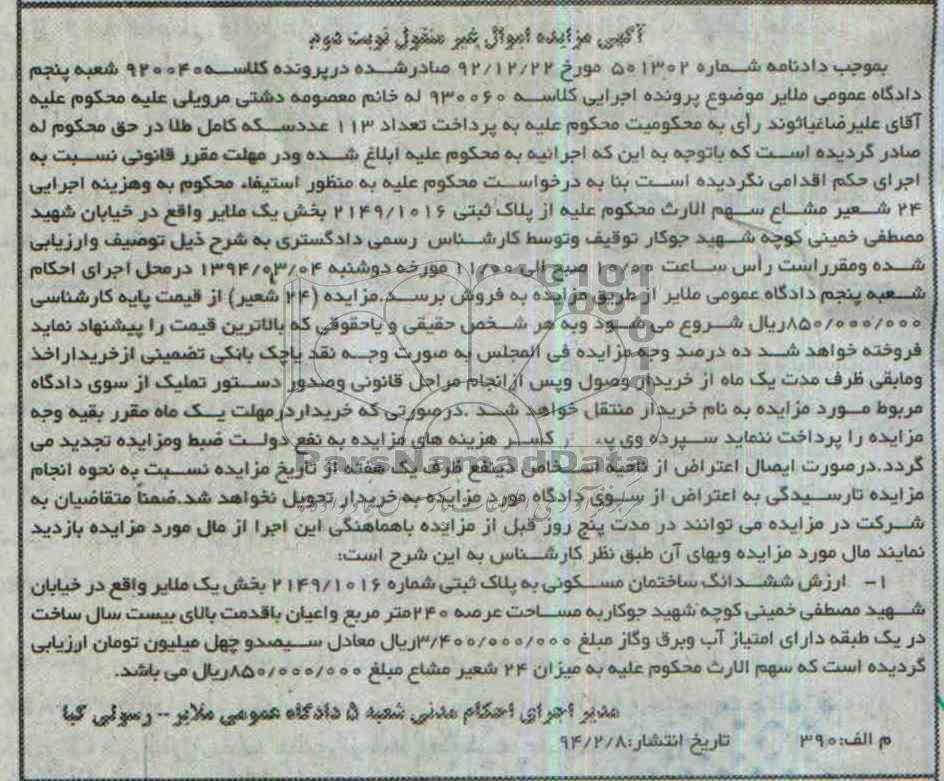 آگهی مزایده اموال غیر منقول نوبت دوم
بموجب دادنامه شماره ۵۰۱۳۰۲ مورخ ۹۲/۱۲/۲۲ صادرشده درپرونده کلاسه ۹۲۰۰۴۰ شعبه پنجم
دادگاه عمومی ملایر موضوع پرونده اجرایی کلاسه ۹۳۰۰۶۰ له خانم معصومه دشتی مرویلی علیه محکوم علیه
آقای علیرضاغیاثوند رأی به محکومیت محکوم علیه به پرداخت تعداد ۱۱۳ عددسکه کامل طلا در حق محکوم له
صادر گردیده است که باتوجه به این که اجرائیه به محکوم علیه ابلاغ شده ودر مهلت مقرر قانونی نسبت به
اجرای حکم اقدامی نگردیده است بنا به درخواست محکوم علیه به منظور استیفاء محکوم به وهزینه اجرایی
۲۴ شعیر مشاع سهم الارث محکوم علیه از پلاک ثبتی ۲۱۴۹/۱۰۱۶ بخش یک ملایر واقع در خیابان شهید
مصطفی خمینی کوچه شهید جوکار توقیف وتوسط کارشناس رسمی دادگستری به شرح ذیل توصیف وارزیابی
شده ومقرراست رأس ساعت ۱۰/۰۰ صبح الی ۱۱/۰۰ مورخه دوشنبه ۱۳۹۴/۰۳/۰۴ درمحل اجرای احکام
شعبه پنجم دادگاه عمومی ملایر از طریق مزایده به فروش برسد.مزایده (۲۴ شعیر) از قیمت پایه کارشناسی
۸۵۰/۰۰۰/۰۰۰ریال شروع می شود وبه هر شخص حقیقی و یاحقوقی که بالاترین قیمت را پیشنهاد نماید
فروخته خواهد شد ده درصد وجه مزایده فی المجلس به صورت وجه نقد یاچک بانکی تضمینی ازخریداراخذ
ومابقی ظرف مدت یک ماه از خریدار وصول وپس ازانجام مراحل قانونی وصدور دستور تملیک از سوی دادگاه
مربوط مورد مزایده به نام خریدار منتقل خواهد شد .درصورتی که خریداردرمهلت یک ماه مقرر بقیه وجه
مزایده را پرداخت ننماید سپرده وی کسر هزینه های مزایده به نفع دولت ضبط ومزایده تجدید می
گردد.درصورت ایصال اعتراض از ناحیه اشخاص ذینفع ظرف یک هفته از تاریخ مزایده نسبت به نحوه انجام
مزایده تارسیدگی به اعتراض از سوی دادگاه مورد مزایده به خریدار تحویل نخواهد شد.ضمناً متقاضیان به
شرکت در مزایده می توانند در مدت پنج روز قبل از مزایده باهماهنگی این اجرا از مال مورد مزایده بازدید
نمایند مال مورد مزایده وبهای آن طبق نظر کارشناس به این شرح است:
۱- ارزش ششدانگ ساختمان مسکونی به پلاک ثبتی شماره ۲۱۴۹/۱۰۱۶ بخش یک ملایر واقع در خیابان
شهید مصطفی خمینی کوچه شهید جوکاربه مساحت عرصه ۲۴۰متر مربع واعیان باقدمت بالای بیست سال ساخت
در یک طبقه دارای امتیاز آب وبرق وگاز مبلغ ۳/۴۰۰/۰۰۰/۰۰۰ریال معادل سیصدو چهل میلیون تومان ارزیابی
گردیده است که سهم الارث محکوم علیه به میزان ۲۴ شعیر مشاع مبلغ ۸۵۰/۰۰۰/۰۰۰ریال می باشد.
مدیر اجرای احکام مدنی شعبه ۵ دادگاه عمومی ملایر-- رسولی کیا
م الف:۳۹۰ تاریخ انتشار:۹۴/۲/۸
ParsNamadData